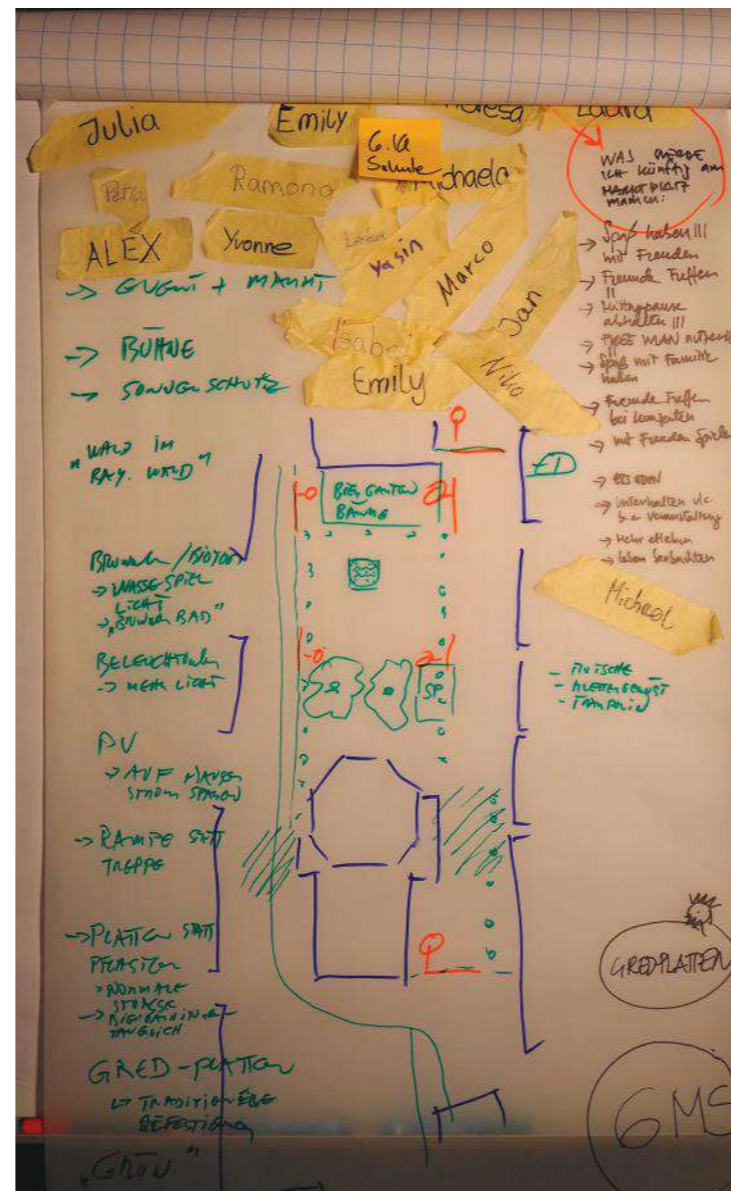 Julia
Emily
Laura
6. Kla
Schule
Petra
Ramona
Michaela
ALEX
Yvonne
Yasin
Marco
Jan
Isabel
Emily
Niko
Michael
WAS WERDE
ICH künftig am
MARKTPLATZ
machen:
→ Spaß haben |||
mit Freunden
→ Freunde Treffen
||
→ Mittagspause
abhalten |||
→ FREE WLAN nutzen
→ Spaß mit Familie
haben
→ Freunde Treffen
bei Konzerten
→ mit Freunden Spielen
→ EIS ESSEN
→ Unterhalten
Veranstaltung
→ Mehr erleben
→ Leben beobachten
→ EVENT + MARKT
→ BÜHNE
→ SONNENSCHUTZ
„WALD IM
BAY. WALD“
BRUNNEN/BIOTOP
→ WASSESPIEL
LICHT
→ „BRUNNEN BAD“
BELEUCHTUNG
→ MEHR LICHT
PV
→ AUF HÄUSER
STROM SPAREN
→ RAMPE STATT
TREPPE
→ PLATTEN STATT
PFLASTER
→ NORMALE
STRASSE
TAUGLICH
GRED-PLATTEN
↳ TRADITIONELLE
BEFESTIGUNG
„GRÜN“
BIERGARTEN
BÄUME
SP.
ED
- RUTSCHE
- KLETTERGERÜST
- TRAMPOLIN
GREDPLATTEN
GMS